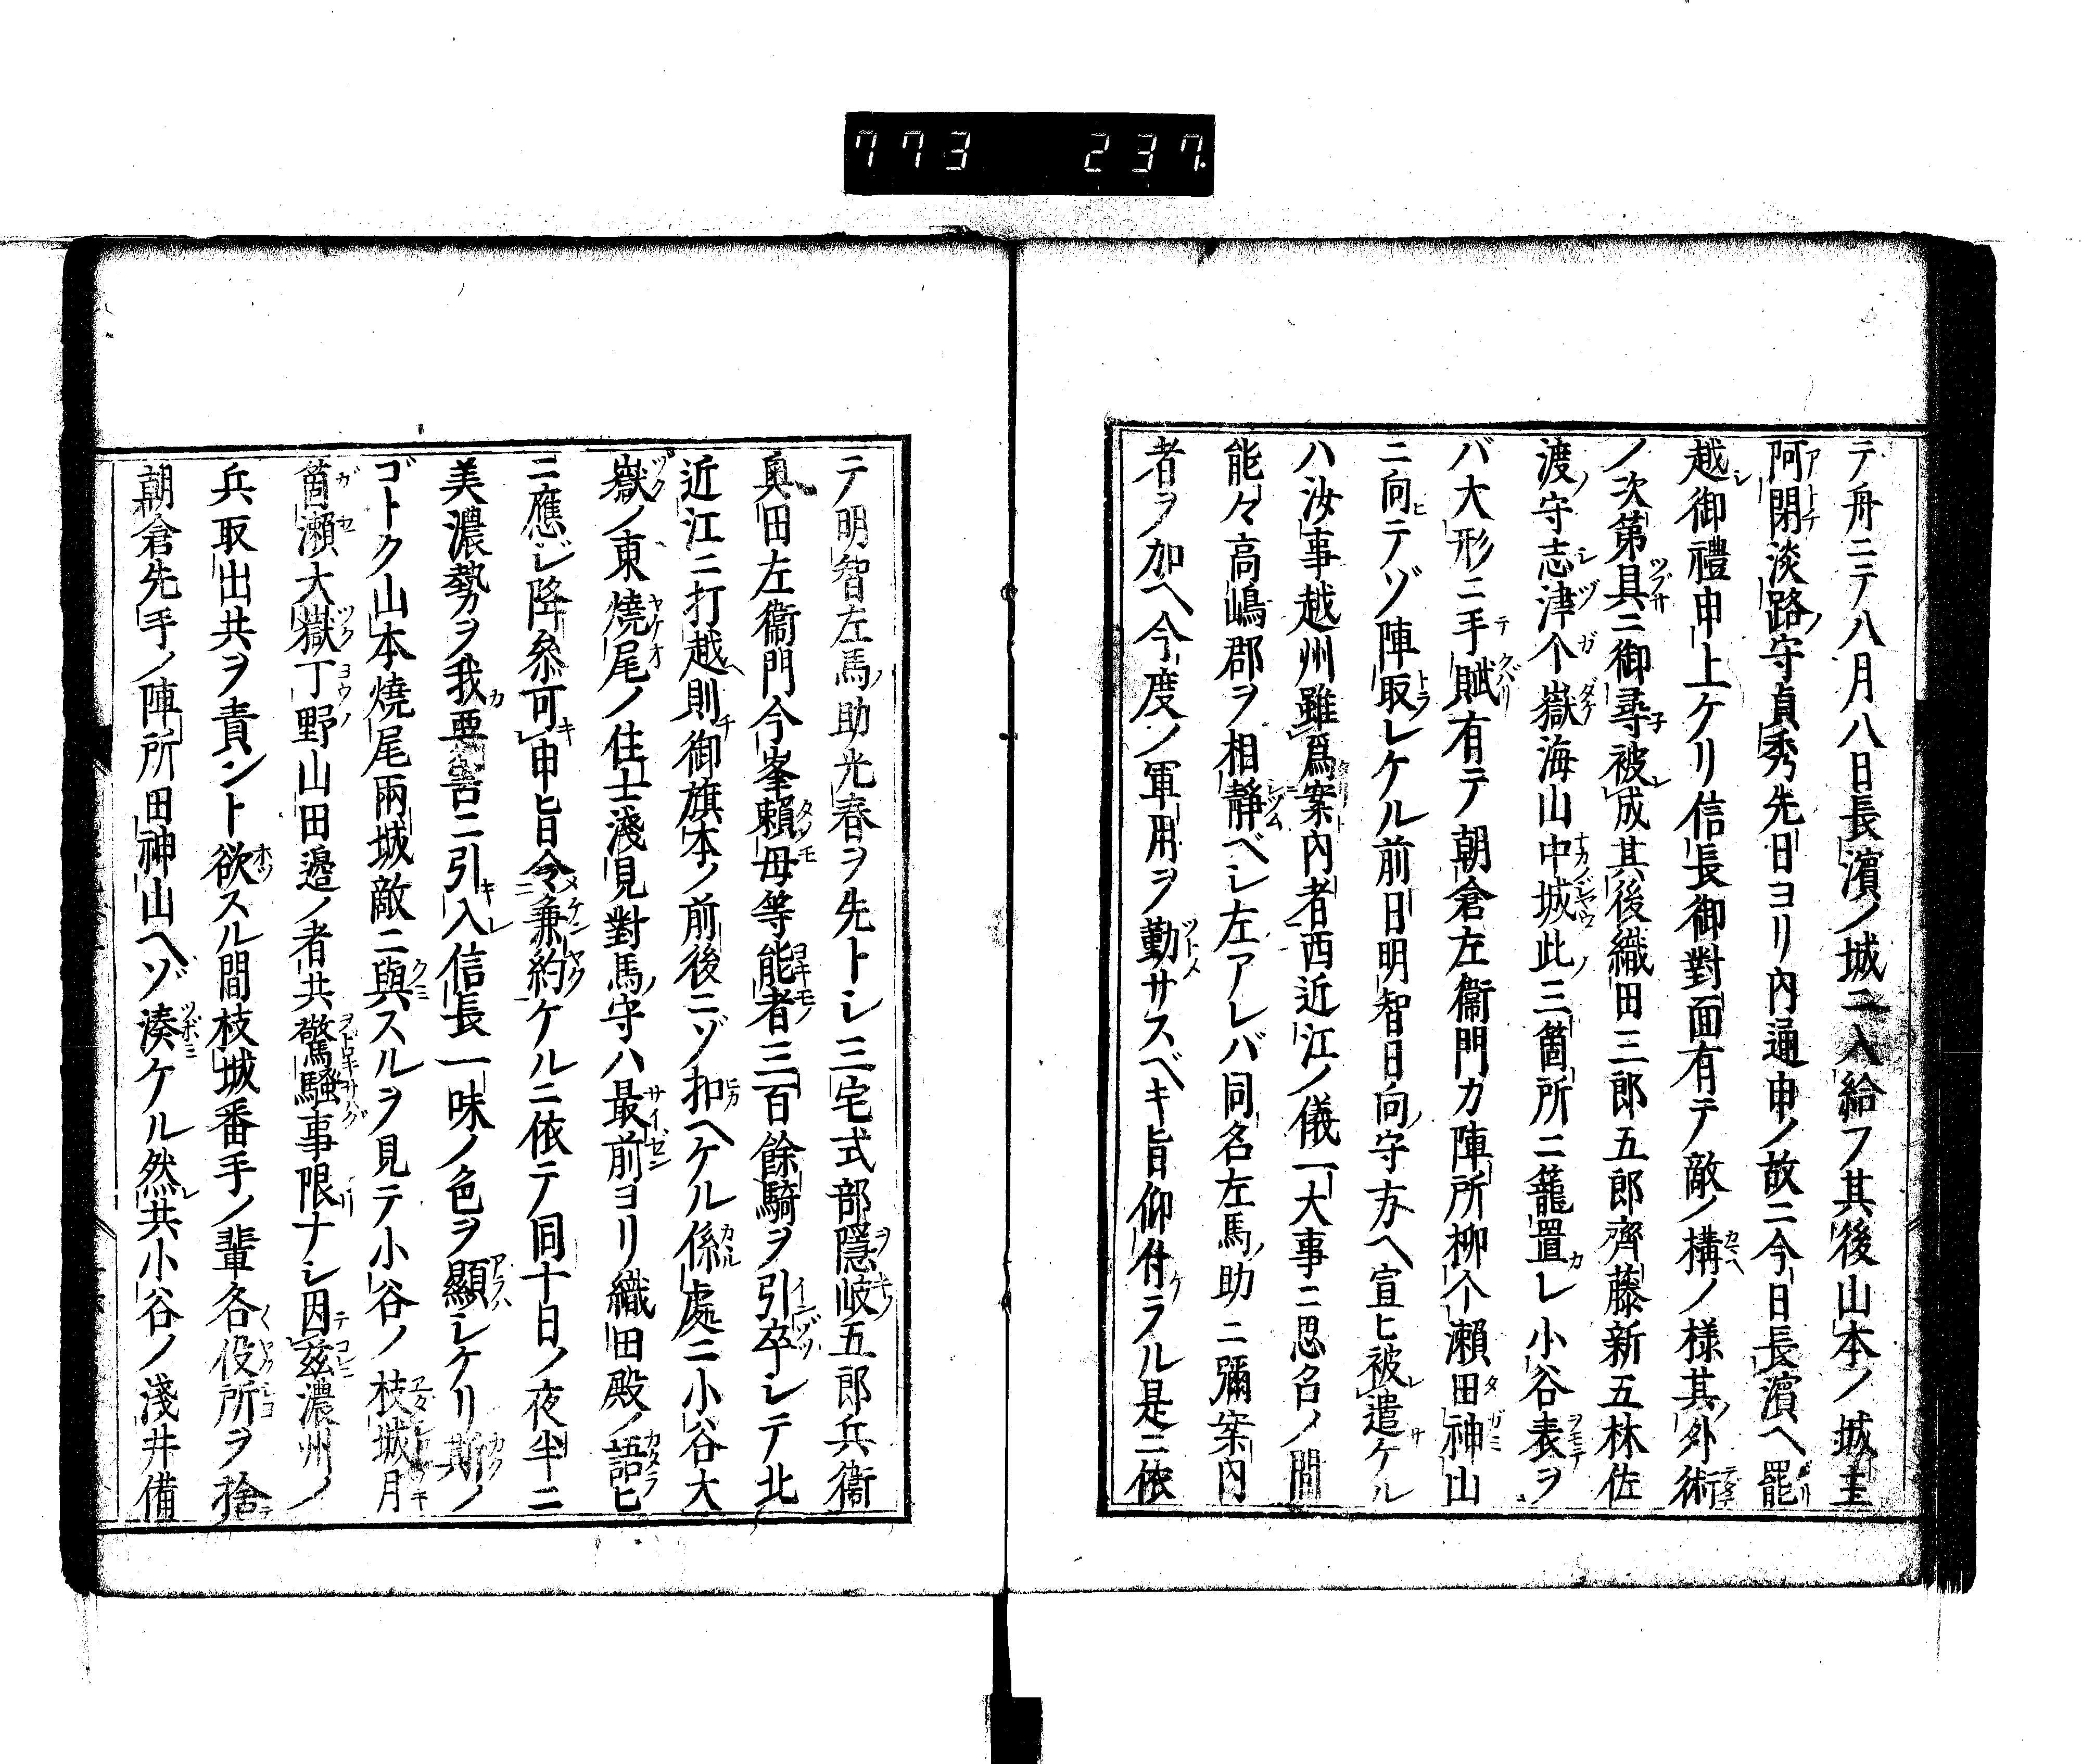 773 237
テ舟ニテ八月八日長濱ノ城ニ入給フ其後山本ノ城主
阿閉淡路守貞秀先日ヨリ内通申ノ故ニ今日長濱ヘ罷
越御禮申上ケリ信長御對面有テ敵ノ構ノ様其外術
ノ次第具ニ御尋被成其後織田三郎五郎齊藤新五林佐
渡守志津个嶽海山中城此三箇所ニ籠置レ小谷表ヲ
バ大形ニ手賦有テ朝倉左衞門カ陣所柳个瀬田神山
ニ向テゾ陣取レケル前日明智日向守方ヘ宣ヒ被遣ケル
ハ汝事越州雖爲案内者西近江ノ儀一大事ニ思召ノ間
能々高嶋郡ヲ相靜ベシ左アレバ同名左馬助ニ彌案内
者ヲ加ヘ今度ノ軍用ヲ勤サスベキ旨仰付ラル是ニ依
テ明智左馬助光春ヲ先トシ三宅式部隱岐五郎兵衞
奥田左衞門今峯賴母等能者三百餘騎ヲ引卒シテ北
近江ニ打越則御旗本ノ前後ニゾ扣ヘケル係處ニ小谷大
嶽ノ東燒尾ノ住士淺見對馬守ハ最前ヨリ織田殿ノ語ヒ
ニ應ジ降叅可申旨令兼約ケルニ依テ同十日ノ夜半ニ
美濃勢ヲ我要害ニ引入信長一味ノ色ヲ顯シケリ斯ノ
ゴトク山本燒尾兩城敵ニ與スルヲ見テ小谷ノ枝城月
箇瀬大嶽丁野山田邉ノ者共驚騷事限ナシ因茲濃州ノ
兵取出共ヲ責ント欲スル間枝城番手ノ輩各役所ヲ捨
朝倉先手ノ陣所田神山ヘゾ湊ケル然共小谷ノ淺井備